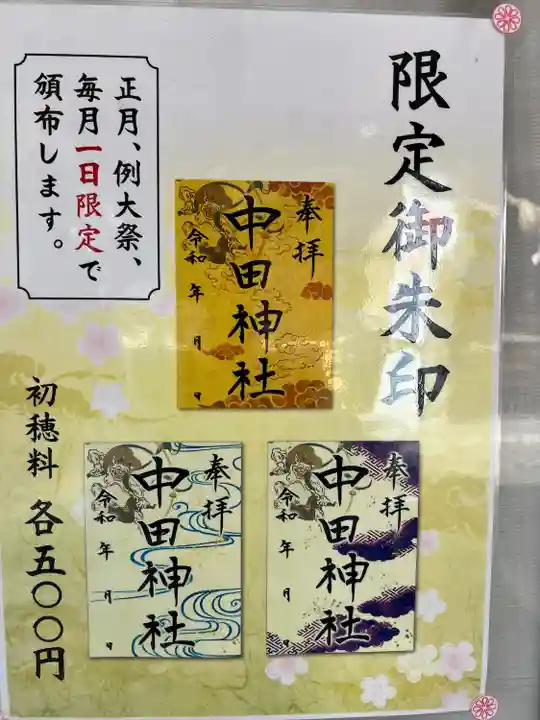 限定御朱印
正月、例大祭、
毎月一日限定で
頒布します。
奉拝
中田神社
令和 年 月 日
奉拝
中田神社
令和 年 月 日
奉拝
中田神社
令和 年 月 日
初穂料 各五〇〇円